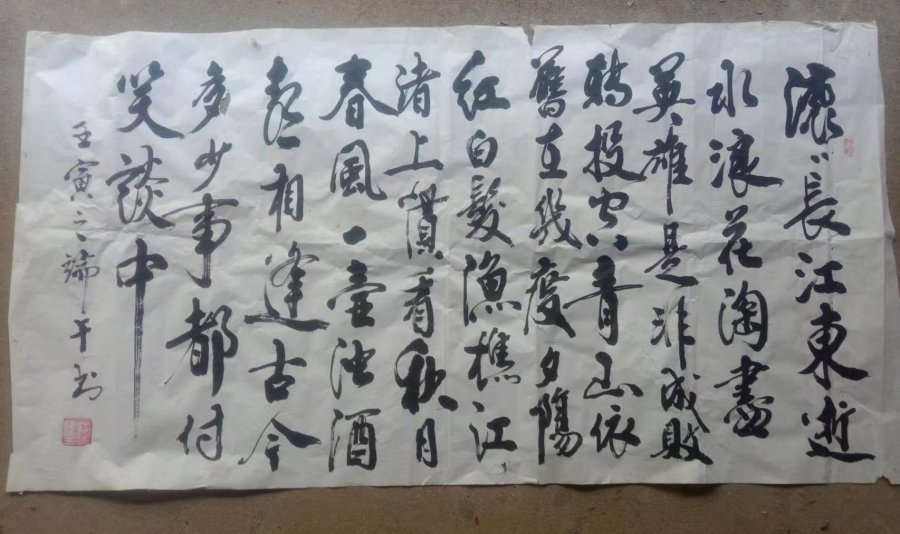 滚滚長江東逝
水浪花淘盡
英雄是非成敗
轉頭空青山依
舊在幾度夕陽
紅白髮漁樵江
渚上慣看秋月
春風一壺浊酒
喜相逢古今
多少事都付
笑談中
壬寅之端午书